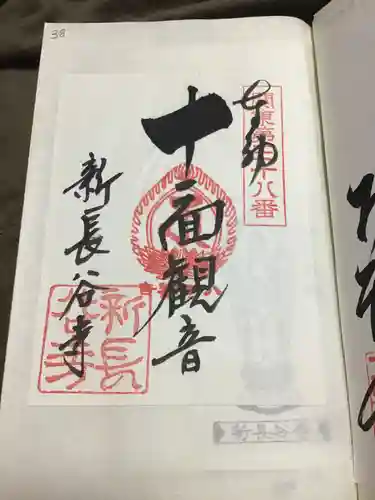 38
奉拝
関東第三十八番
十一面観音
新長谷寺
新長谷寺